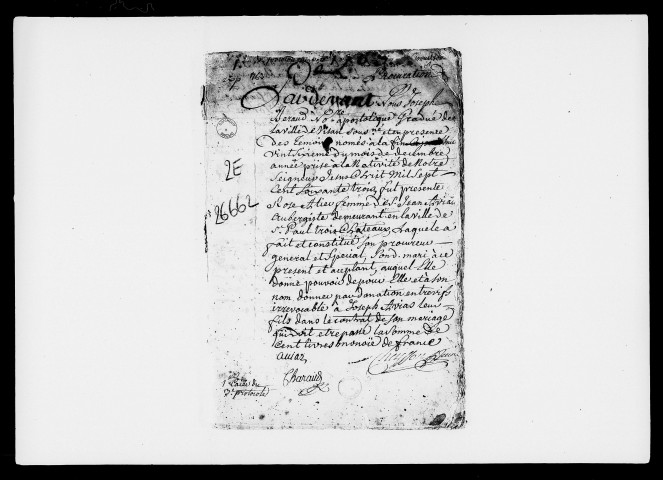 Procuration
Pardevant Nous Joseph
Beraud No.re apostolique Gradué de
la ville de soussigné et en presence
des temoins només a la fin ce jourdhui
vint sixieme du mois de decembre
année prise a la Nativité de Notre
Seigneur Jesus Christ Mil Sept
Cent Soixante trois, fut presente
Rose femme de S.r Jean Avias
aubergiste demeurant en la ville de
S.t Paul trois Chateaux, Laquelle a
fait et constitué son procureur
general et special, Sond. mari, a ce
present et aceptant, auquel Elle
donne pouvoir de pour Elle et a son
nom donner par donation entrevifs
irrevocable à Joseph Avias leur
fils dans le contrat de son mariage
qui doit etre passé la somme de
Cent livres monoïe de france
2E
26662
Charaud